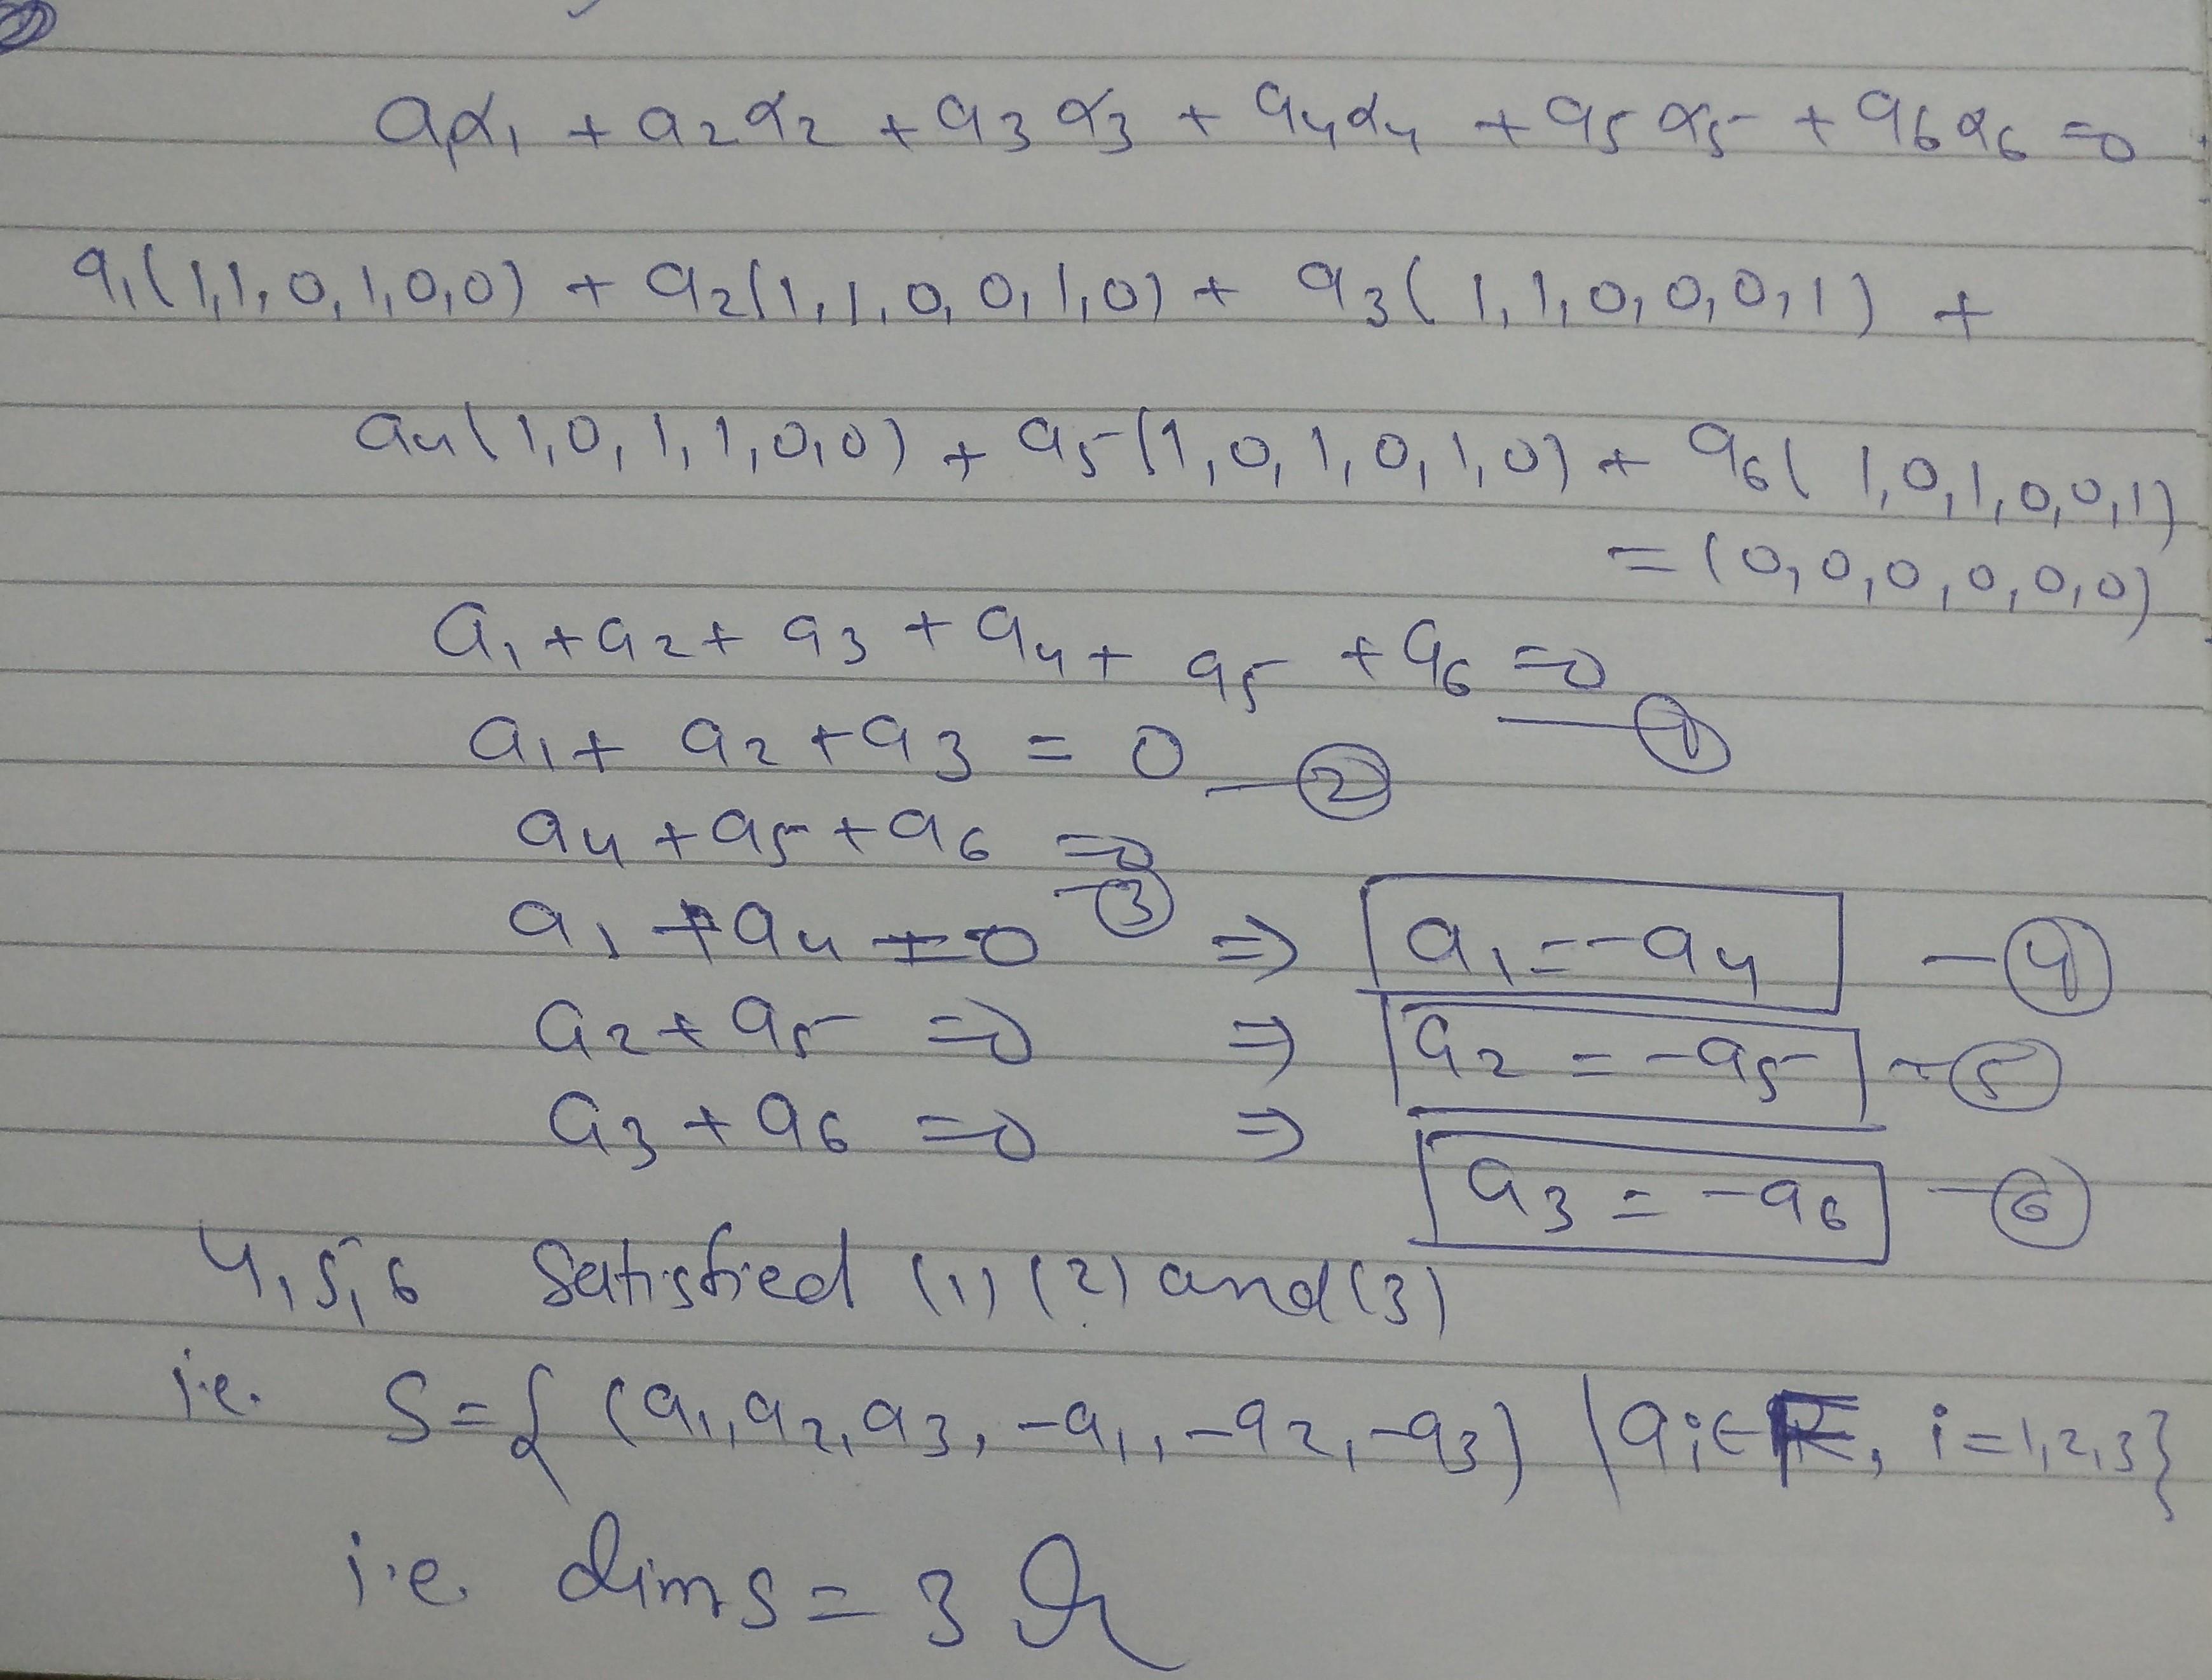 a₁α₁ + a₂α₂ + a₃α₃ + a₄α₄ + a₅α₅ + a₆α₆ = 0
a₁(1,1,0,1,0,0) + a₂(1,1,0,0,1,0) + a₃(1,1,0,0,0,1) +
a₄(1,0,1,1,0,0) + a₅(1,0,1,0,1,0) + a₆(1,0,1,0,0,1)
= (0,0,0,0,0,0)
a₁ + a₂ + a₃ + a₄ + a₅ + a₆ = 0 — ①
a₁ + a₂ + a₃ = 0 — ②
a₄ + a₅ + a₆ = 0 — ③
a₁ + a₄ = 0 ⇒ a₁ = -a₄ — ④
a₂ + a₅ = 0 ⇒ a₂ = -a₅ — ⑤
a₃ + a₆ = 0 ⇒ a₃ = -a₆ — ⑥
4,5,6 Satisfied (1) (2) and (3)
i.e. S = { (a₁, a₂, a₃, -a₁, -a₂, -a₃) | aᵢ ∈ , i = 1,2,3}
i.e. dim S = 3